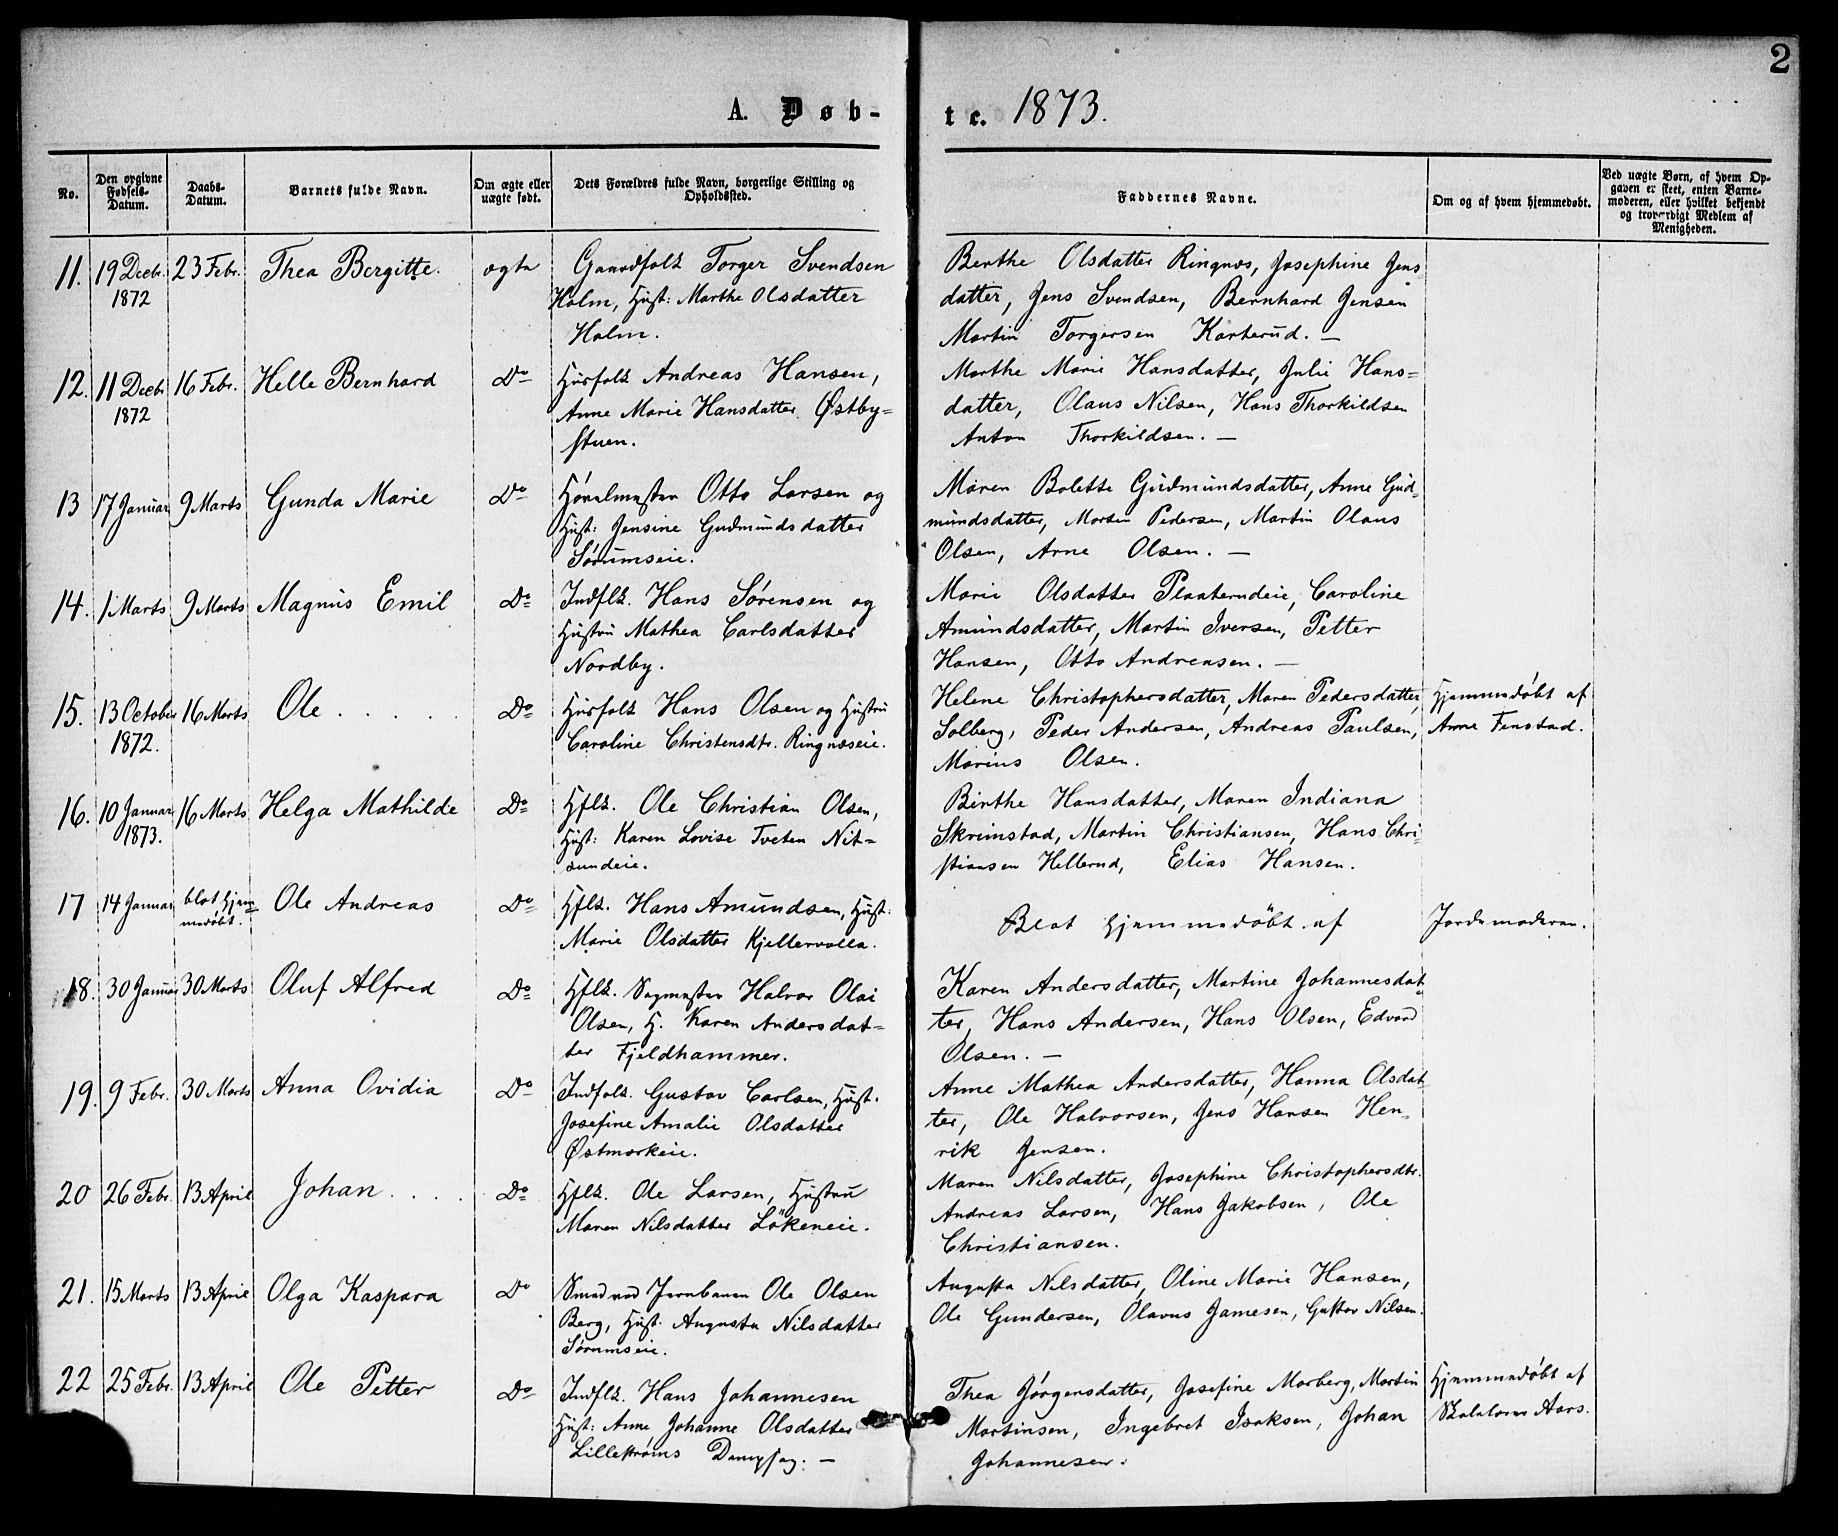 2
A. Døb-
te. 1873.
No.
Den opgivne Fødsels-Datum.
Daabs-Datum.
Barnets fulde Navn.
Om ægte eller uægte født.
Dets Forældres fulde Navn, borgerlige Stilling og Opholdssted.
Faddernes Navne.
Om og af hvem hjemmedøbt.
Ved uægte Børn, af hvem Op-
gaven er skeet, enten Barne-
moderen, eller hvilket bekjendt
og troværdigt Medlem af
Menigheden.
11. 19 Decbr. 1872 23 Febr. Thea Bergitte. ægte
Gaardfolk Torger Svendsen
Holm, Hust: Marthe Olsdatter
Holm.
Berthe Olsdatter Ringnæs, Josephine Jens
datter, Jens Svendsen, Bernhard Jensen
Martin Torgersen Karterud. —
12. 11 Decbr 1872 16 Febr. Helle Bernhard Do
Husfolk Andreas Hansen,
Anne Marie Hansdatter Østby=
stuen.
Marthe Marie Hansdatter, Julie Hans=
datter, Olaus Nilsen, Hans Thorkildsen
Anton Thorkildsen. —
13 17 Januar 9 Marts Gunda Marie Do
Høvelmester Otto Larsen og
Hust: Jensine Gudmundsdatter
Sørumseie.
Maren Bolette Gudmundsdatter, Anne Gud=
mundsdatter, Morten Pedersen, Martin Olaus
Olsen, Arne Olsen. —
14. 1 Marts 9 Marts Magnus Emil Do
Indflk. Hans Sørensen og
Hustru Mathea Carlsdatter
Nordby.
Marie Olsdatter Plaaterudeie, Caroline
Amundsdatter, Martin Iversen, Petter
Hansen, Otto Andreasen. —
15. 13 October 1872. 16 Marts Ole . . . . Do
Husfolk Hans Olsen og Hustru
Caroline Christensdtr. Ringnæseie.
Helene Christophersdatter, Maren Pedersdatter,
Solberg, Peder Andersen, Andreas Paulsen,
Marius Olsen.
Hjemmedøbt af
Arne Fenstad.
16. 10 Januar 1873. 16 Marts Helga Mathilde Do
Hflk. Ole Christian Olsen,
Hust: Karen Lovise Tveten Nit=
sundeie.
Birthe Hansdatter, Maren Indiana
Skrimstad, Martin Christiansen, Hans Chri-
stiansen Hellerud, Elias Hansen.
17 14 Januar blot hjem=
medøbt. Ole Andreas Do
Hflk. Hans Amundsen, Hust:
Marie Olsdatter Kjellervolla.
Blot hjemmedøbt af Jordemoderen.
18. 30 Januar 30 Marts Oluf Alfred Do
Hflk. Sagmester Halvor Olai
Olsen, H. Karen Andersdat=
ter Fjeldhammer.
Karen Andersdatter, Martine Johannesdat=
ter, Hans Andersen, Hans Olsen, Edvard
Olsen. —
19. 9 Febr. 30 Marts Anna Ovidia Do
Indfolk. Gustav Carlsen, Hust.
Josefine Amalie Olsdatter
Østmorkeie.
Anne Mathea Andersdatter, Hanna Olsdat=
ter, Ole Halvorsen, Jens Hansen Hen-
rik Jensen.
20 26 Febr. 13 April Johan . . . . Do
Hflk. Ole Larsen, Hustru
Maren Nilsdatter Løkeneie.
Maren Nilsdatter, Josephine Christophersdtr.
Andreas Larsen, Hans Jakobsen, Ole
Christiansen.
21. 15 Marts 13 April Olga Kaspara Do
Smed ved Jernbanen Ole Olsen
Berg, Hust. Augusta Nilsdatter
Sørumseie.
Augusta Nilsdatter, Oline Marie Hansen,
Ole Gundersen, Olavus Jamesen, Gustav Nilsen.
22 25 Febr. 13 April Ole Petter Do
Indflk. Hans Johannesen
Hust: Anne Johanne Olsdatter
Lillestrøms Dampsag. —
Thea Jørgensdatter, Josefine Morberg, Martin
Martinsen, Ingebret Isaksen, Johan
Johannesen.
Hjemmedøbt af
Skolelærer Aars.